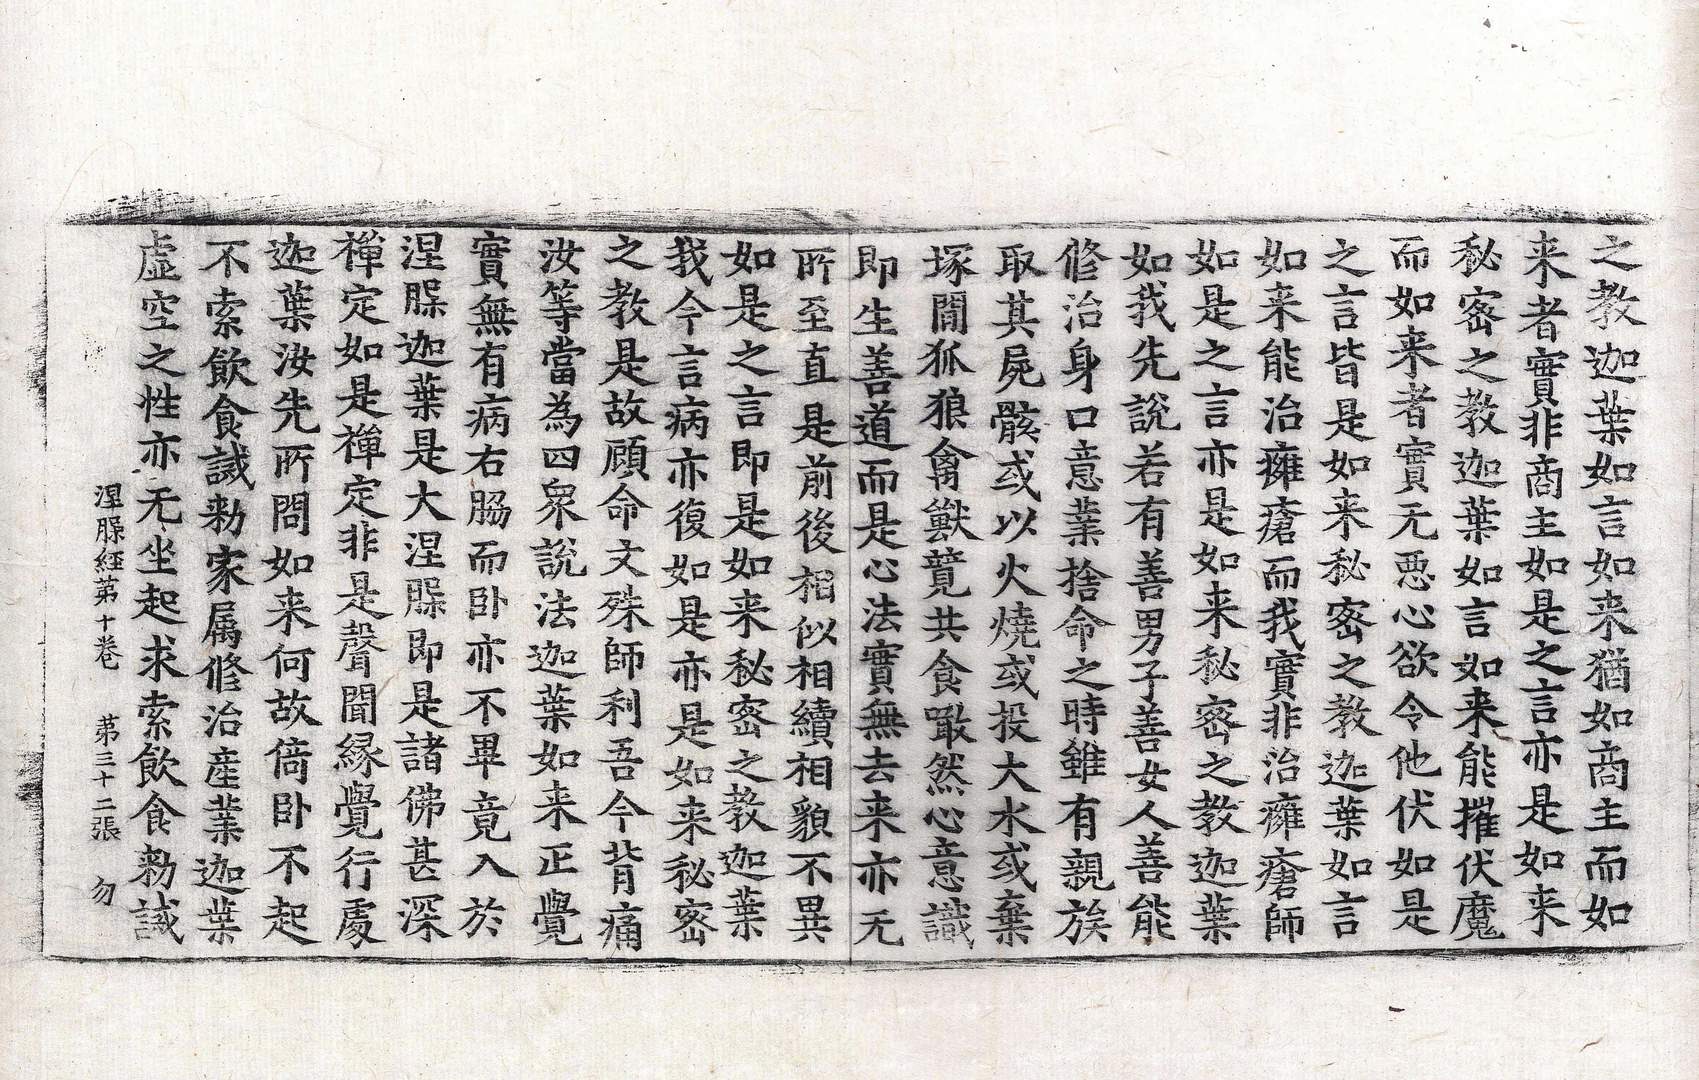 之教迦葉如言如来猶如商主而如
来者實非商主如是之言亦是如来
秘密之教迦葉如言如来能摧伏魔
而如来者實无悪心欲令他伏如是
之言皆是如来秘密之教迦葉如言
如来能治癰瘡而我實非治癰瘡師
如是之言亦是如来秘密之教迦葉
如我先說若有善男子善女人善能
修治身口意業捨命之時雖有親族
取其屍骸或以火燒或投大水或棄
塚間狐狼禽獸競共食噉然心意識
即生善道而是心法實無去来亦无
所至直是前後相似相續相貌不異
如是之言即是如来秘密之教迦葉
我今言病亦復如是亦是如来秘密
之教是故顧命文殊師利吾今背痛
汝等當為四衆說法迦葉如来正覺
實無有病右脇而卧亦不畢竟入於
涅槃迦葉是大涅槃即是諸佛甚深
禪定如是禪定非是聲聞縁覺行處
迦葉汝先所問如来何故倚卧不起
不索飲食誡勑家属修治產業迦葉
虛空之性亦无坐起求索飲食勑誡
涅槃経第十卷 第三十二張 勿